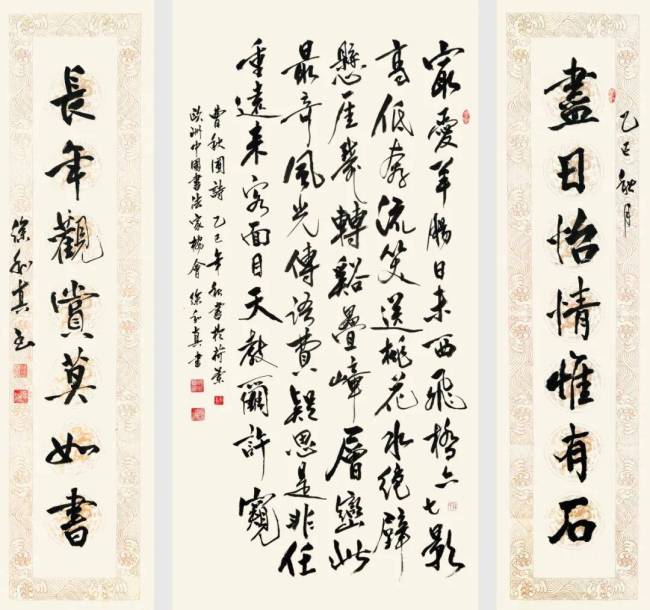 乙巳秋月
盡日怡情惟有石
最愛羊腸日未西飛橋六七影
高低奔流笑送桃花水絕壁
懸崖幾轉谿疊嶂層巒此
最奇風光傳語費疑思是非任
重遠來客面目天教爾許窺
曹秋圃詩 乙巳年秋書於荷蘭
歐洲中國書法家協會 徐真書
長年觀賞莫如書
徐真書